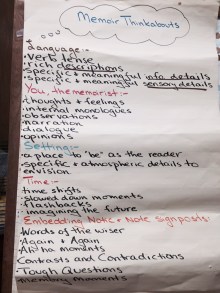 Memoir Thinkabouts
Language:-
• Verb tense
• rich descriptions
• specific & meaningful info details
• specific & meaningful sensory details
You, the memoirist:-
• thoughts & feelings
• internal monologues
• observations
• narration
• dialogue
• opinions
Setting:-
• a place to "be" as the reader
• specific & atmospheric details to
envision
Time:-
• time shifts
• slowed down moments
• flashbacks
• imagining the future
Embedding Notice & Note signposts
• Words of the wiser
• Again & Again
• Ah-ha moments
• Contrasts and Contradictions
• Tough Questions
• Memory Moments